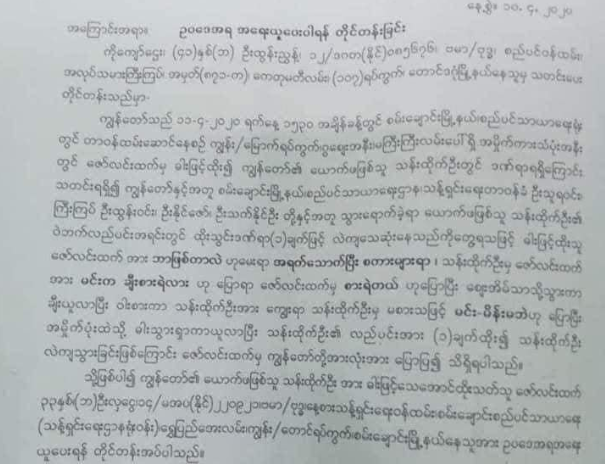 နေ့စွဲ၊ ၁၀. ၄. ၂၀၂၀
အကြောင်းအရာ။ ဥပဒေအရ အရေးယူပေးပါရန် တိုင်တန်းခြင်း
ကိုကျော်ဌေး၊ (၄၁)နှစ်(ဘ) ဦးထွန်းညွန့်၊ ၁၂/ဒဂတ(နိုင်)၀၈၅၆၇၆၊ ဗမာ/ဗုဒ္ဓ၊ စည်ပင်ဝန်ထမ်း၊
အလုပ်သမားကြီးကြပ်၊ အမှတ်(၈၇၁-က)၊ ကေတုမတီလမ်း၊ (၁၀၇)ရပ်ကွက်၊ တောင်ဒဂုံမြို့နယ်နေသူမှ သတင်းပေး
တိုင်တန်းသည်မှာ-
ကျွန်တော်သည် ၁၁-၄-၂၀၂၀ ရက်နေ့ ၁၅၃၀ အချိန်ခန့်တွင် စမ်းချောင်းမြို့နယ်စည်ပင်သာယာရေးရုံး
တွင် တာဝန်ထမ်းဆောင်နေစဉ် ကျွန်း/မြောက်ရပ်ကွက်ဝွေရေးအနီးမကြီးကြီးလမ်းပေါ်ရှိ အမှိုက်ကားသံပုံးအနီး
တွင် ဇော်လင်းထက်မှ ဓါးဖြင့်ထိုး၍ ကျွန်တော်၏ ယောက်ဖဖြစ်သူ သန်းထိုက်ဦးတွင် ဒဏ်ရာရရှိကြောင်း
သတင်းရရှိ၍ ကျွန်တော်နှင့်အတူ စမ်းချောင်းမြို့နယ်စည်ပင်သာယာရေးဌာန၊ သန့်ရှင်းရေးတာဝန်ခံ ဦးသူရဝင်း၊
ကြီးကြပ် ဦးထွန်းဝင်း၊ ဦးနိုင်ဇော်၊ ဦးသက်နိုင်ဦး တို့နှင့်အတူ သွားရောက်ခဲ့ရာ ယောက်ဖဖြစ်သူ သန်းထိုက်ဦး၏
ဝဲဘက်လည်ပင်းအရင်းတွင် ထိုးသွင်းဒဏ်ရာ(၁)ချက်ဖြင့် လဲကျသေဆုံးနေသည်ကိုတွေ့ရသဖြင့် ဓါးဖြင့်ထိုးသူ
ဇော်လင်းထက် အား ဘာဖြစ်တာလဲ ဟုမေးရာ အရက်သောက်ပြီး စကားများရာ ၊ သန်းထိုက်ဦးမှ ဇော်လင်းထက်
အား မင်းက ချီးစားရဲလား ဟု ပြောရာ ဇော်လင်းထက်မှ စားရဲတယ် ဟုပြောပြီး ဈေးအိမ်သာသို့သွားကာ
ချီးယူလာပြီး ဝါးစားကာ သန်းထိုက်ဦးအား ကျွေးရာ သန်းထိုက်ဦးမှ မစားသဖြင့် မင်း-မိန်းမဘဲဟု ပြောပြီး
အမှိုက်ပုံးထဲသို့ ဓါးသွားရှာကာယူလာပြီး သန်းထိုက်ဦး၏ လည်ပင်းအား (၁)ချက်ထိုး၍ သန်းထိုက်ဦး
လဲကျသွားခြင်းဖြစ်ကြောင်း ဇော်လင်းထက်မှ ကျွန်တော်တို့အားလုံးအား ပြောပြ၍ သိရှိရပါသည်။
သို့ဖြစ်ပါ၍ ကျွန်တော်၏ ယောက်ဖဖြစ်သူ သန်းထိုက်ဦး အား ဓါးဖြင့်သေအောင်ထိုးသတ်သူ ဇော်လင်းထက်
၃၃နှစ်(ဘ)ဦးလှငွေ၊၁၄/မအပ(နိုင်)၂၂၀၉၂၁၊ဗမာ/ဗုဒ္ဓ၊နေ့စားသန့်ရှင်းရေးဝန်ထမ်း၊စမ်းချောင်းစည်ပင်သာယာရေး
(သန့်ရှင်းရေးဌာနရုံးဝန်း)ရွှေပြည်အေးလမ်း၊ကျွန်း/တောင်ရပ်ကွက်၊စမ်းချောင်းမြို့နယ်နေသူအား ဥပဒေအရအရေး
ယူပေးရန် တိုင်တန်းအပ်ပါသည်။